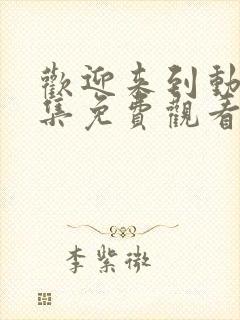 歡迎来到動
集免費觀看
李紫微